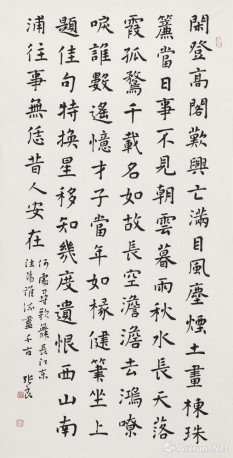 閑登高閣歎興亡滿目風塵煙土畫棟珠
簾當日事不見朝雲暮雨秋水長天落
霞孤鶩千載名如故長空澹澹去鴻嘹
唳誰數遙憶才子當年如椽健筆坐上
題佳句物換星移知幾度遺恨西山南
浦往事無昔人安在
何處尋歌舞長江東
注為誰流盡千古